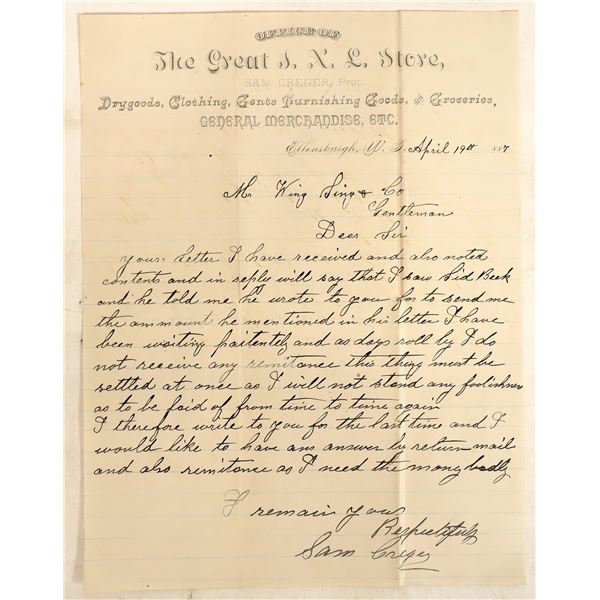 OFFICE OF
The Great I. X. L. Store,
SAM CREGER, Prop.
Drygoods, Clothing, Gents Furnishing Goods, & Groceries,
GENERAL MERCHANDISE, ETC.
Ellensburgh, W. T. April 19th 1887
Mr King Sing & Co
Gentleman
Dear Sir
Your letter I have received and also noted
contents and in reply will say that I saw Sid Beek
and he told me he wrote to you for to send me
the ammount he mentioned in his letter I have
been waiting paitently and as days roll by I do
not receive any remitance this thing must be
settled at once as I will not stand any foolishness
as to be foid of from time to time again
I therefore write to you for the last time and I
would like to have ans answer by return mail
and also remitance as I need the mony badly
I remain yous
Respectfuly
Sam Creger